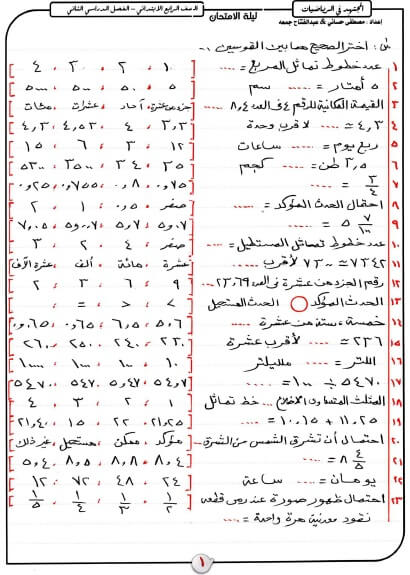 المجتهد في الرياضيات
ليلة الامتحان
الصف الرابع الابتدائي - الفصل الدراسي الثاني
إعداد : مصطفى حسانى & عبدالفتاح جمعه
س١ : اختر الصحيح مما بين القوسين :-
١ عدد خطوط تماثل المربع = .... [ ١ ، ٢ ، ٣ ، ٤ ]
٢ ٥ أمتار = ..... سم [ ٥ ، ٥٠ ، ٥٠٠ ، ٥٠٠٠ ]
٣ القيمة المكانية للرقم ٤ في العدد ٨,٤ [ جزء من عشرة ، آحاد ، عشرات ، مئات ]
٤ ٤,٣ ≃ ..... لأقرب وحدة
٥ ربع يوم = ..... ساعات [ ١٢ ، ٣ ، ٦ ، ١٥ ]
٦ ٣,٥ طن = ..... كجم
٧ ٣/٤ = .....
٨ احتمال الحدث المؤكد = ..... [ صفر ، ٠,٥ ، ١ ، ٢ ]
٩ ٥ ٧/١٠٠ = ..... [ ٥,٠٧ ، ٥,٧ ، ٥٠,٠٧ ، ٧,٠٥ ]
١٠ عدد خطوط تماثل المستطيل = .... [ صفر ، ٤ ، ٢ ، ٣ ]
١١ ٧٣٤٢ ≃ ٧٣٠٠ لأقرب ..... [ عشرة ، مائة ، ألف ، عشرة آلاف ]
١٢ رقم الجزء من عشرة في العدد ٢٣,٦٩ [ ٩ ، ٦ ، ٣ ، ٢ ]
١٣ الحدث المؤكد ◯ الحدث المستحيل
١٤ خمسة وستة من عشرة = ..... [ ٥,٦ ، ٦,٥ ، ٠,٦٥ ]
١٥ ٢٣٦ ≃ ..... لأقرب عشرة [ ٢٣٠ ، ٢٤٠ ، ٢٥٠ ، ٢٦٠ ]
١٦ اللتر = ..... ملليلتر [ ١٠ ، ١٠٠ ، ١٠٠٠ ، ١ ]
١٧ ٥٤٧٠ ÷ ١٠٠ = ..... [ ٥٤,٧ ، ٥,٤٧ ، ٥٤٧٠ ]
١٨ المثلث المتساوى الأضلاع ... خط تماثل [ ١ ، ٢ ، ٣ ، ٤ ]
١٩ ١١,٢٥ + ١٠,١٥ = ..... [ ٢١,٢٥ ، ٢٢ ، ١٥ ، ٢١,٤٠ ]
٢٠ احتمال أن تشرق الشمس من الشرق ... [ مؤكد ، ممكن ، مستحيل ، غير ذلك ]
٢١ ٨ ٤/٥ = ..... [ ٨,٤ ، ٨,٨ ، ٨,٥ ، ٥,٤ ]
٢٢ يومان = ..... ساعة [ ٢٤ ، ٤٨ ، ٧٢ ، ١٢ ]
٢٣ احتمال ظهور صورة عند رمى قطعة [ ١/٢ ، ١/٣ ، ١/٤ ، ١/٥ ]
نقود معدنية مرة واحدة = .....
١